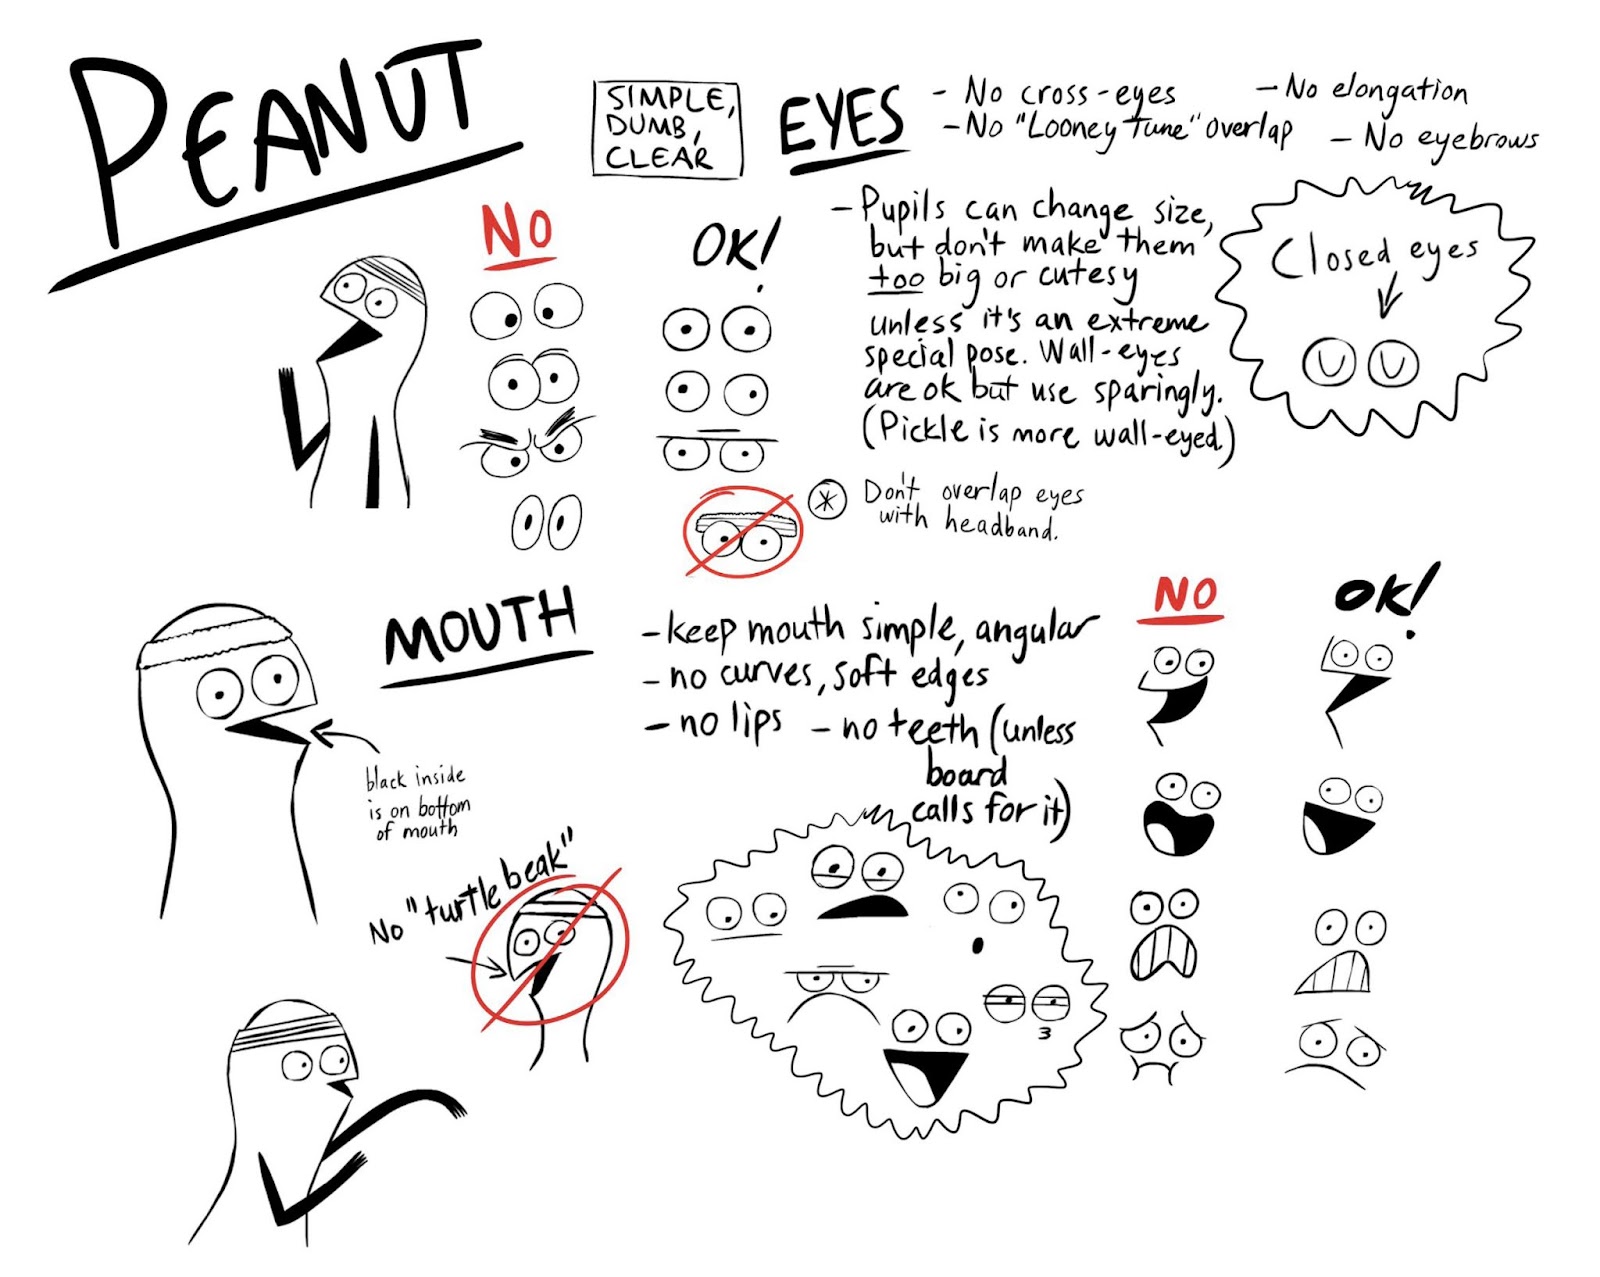 PEANUT
SIMPLE,
DUMB,
CLEAR
EYES
- No cross-eyes
- No elongation
- No "Looney Tune" overlap
- No eyebrows
NO
OK!
- Pupils can change size,
but don't make them
too big or cutesy
unless it's an extreme
special pose. Wall-eyes
are ok but use sparingly.
(Pickle is more wall-eyed.)
Closed eyes
* Don't overlap eyes
with headband.
MOUTH
- keep mouth simple, angular
- no curves, soft edges
- no lips
- no teeth (unless
board
calls for it)
NO
OK!
black inside
is on bottom
of mouth
No "turtle beak"